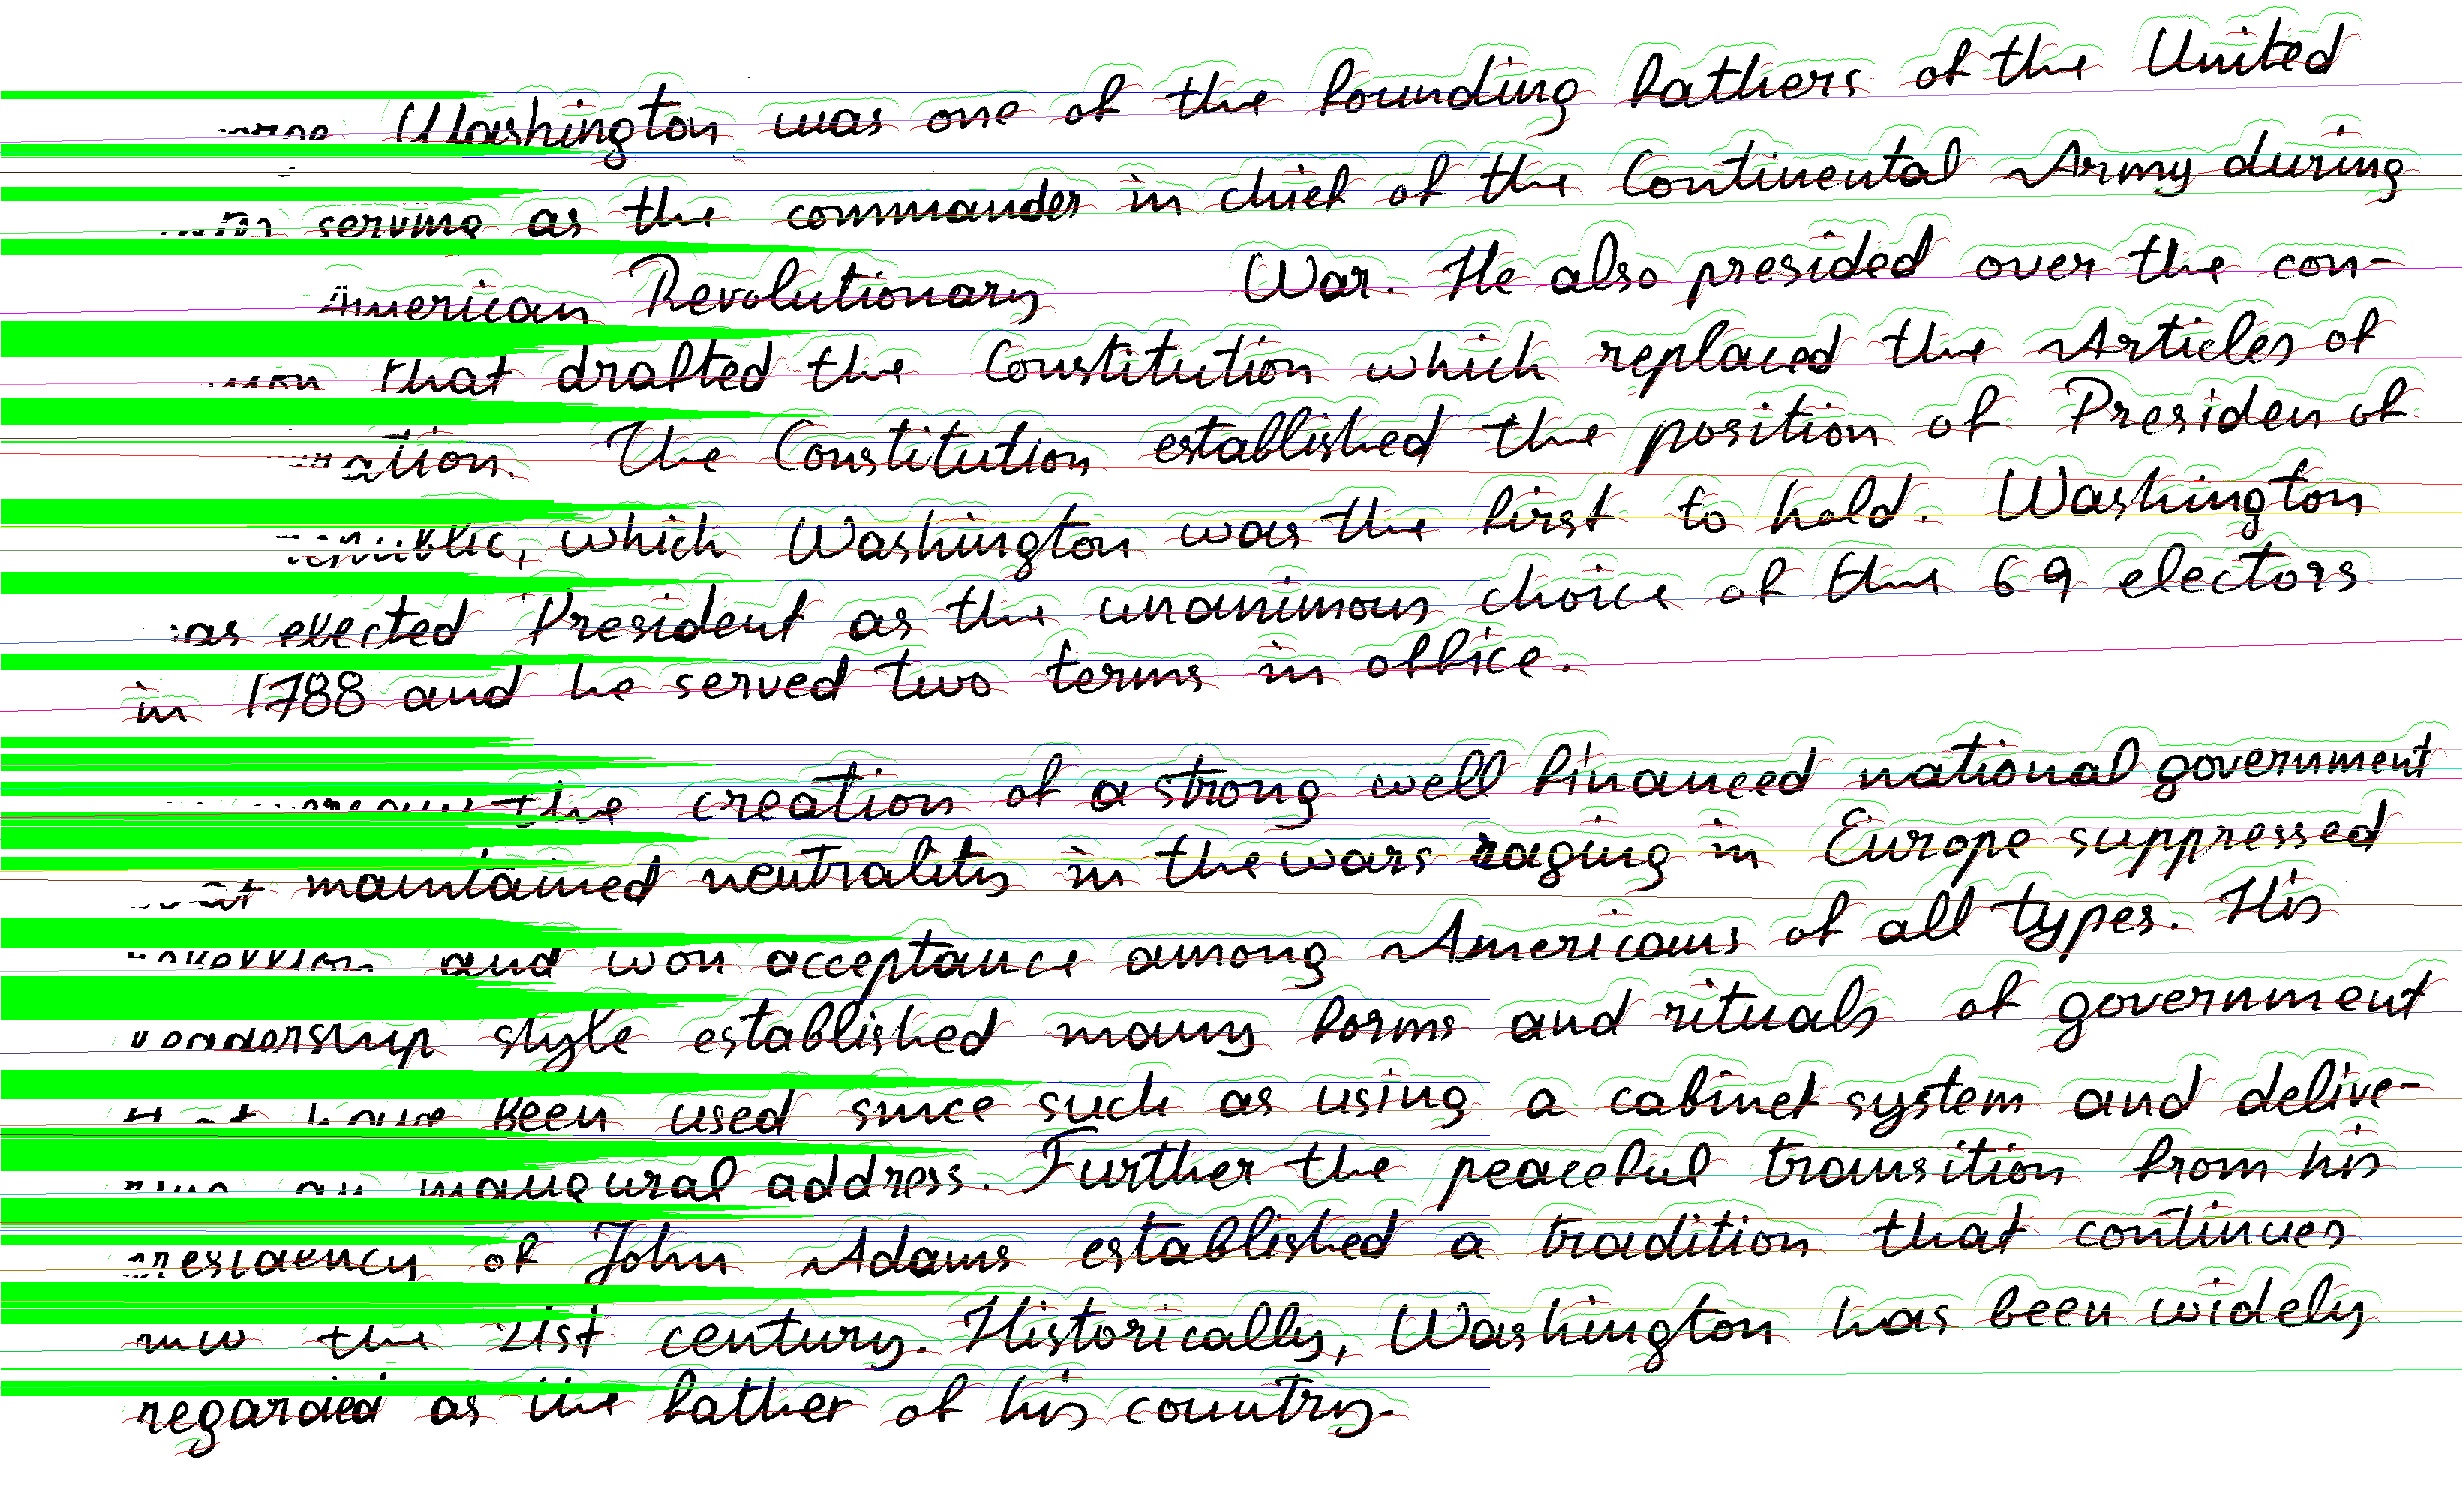 Washington was one of the founding fathers of the United
serving as the commander in chief of the Continental Army during
American Revolutionary War. He also presided over the con-
that drafted the Constitution which replaced the Articles of
The Constitution established the position of Presiden of
which Washington was the first to hold. Washington
elected President as the unanimous choice of the 69 electors
in 1788 and he served two terms in office.
the creation of a strong well financed national government
maintained neutrality in the wars raging in Europe suppressed
and won acceptance among Americans of all types. His
leadership style established many forms and rituals of government
have been used since such as using a cabinet system and delive-
an inaugural address. Further the peaceful transition from his
presidency of John Adams established a tradition that continues
into the 21st century. Historically, Washington has been widely
regarded as the father of his country.